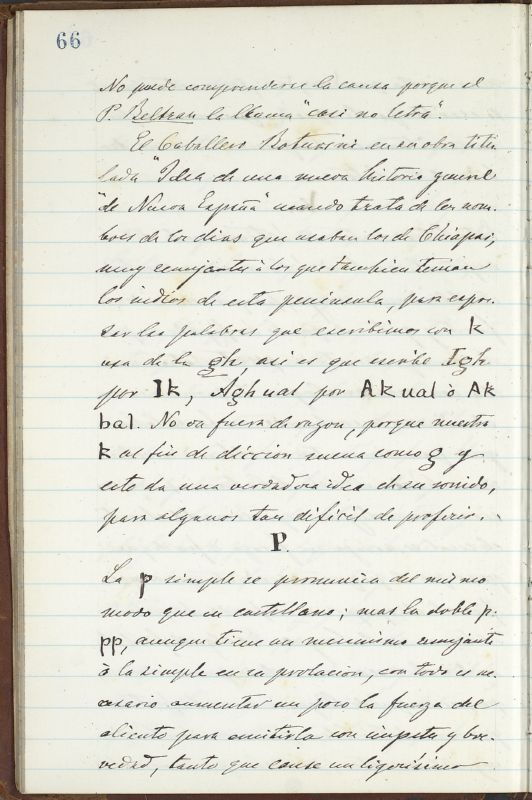 66
No puede comprenderse la causa porque el
P. Beltran la llama "casi no letra".
El Caballero Boturini en su obra titu
lada "Idea de una nueva historia general
"de Nueva España" cuando trata de los nom.
bres de los dias que usaban los de Chiapas,
muy semejantes à los que tambien tenian
los indios de esta peninsula, para espre.
sar las palabras que escribimos con k
usa de la gh, asi es que escribe Igh
por Ik, Aghual por Akual ò Ak
bal. No va fuera de razon, porque nuestra
k al fin de diccion suena como g y
esto da una verdadera idea de su sonido,
para algunos tan dificil de proferir.
P.
La p simple se pronuncia del mismo
modo que en castellano; mas la doble p.
pp, aunque tiene un mecanismo semejante
à la simple en su prolacion, con todo es ne
cesario aumentar un poco la fuerza del
aliento para emitirla con impetu y bre.
vedad, tanto que cause un ligerísimo